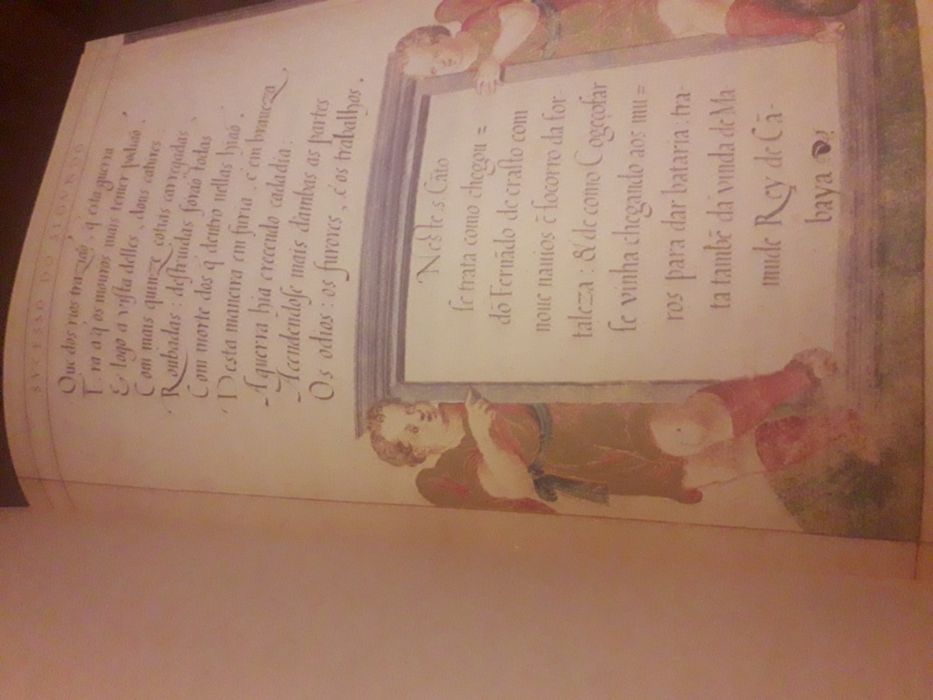 SVCESSO DO SEGVNDO
Que dos rios trazião, q̃ esta guerra
Era a q̃ os mouros mais temer podião.
E logo a vista delles, dous catures
Com mais quinze cotias carregadas
Roubadas: destruidas forão todas
Com morte dos q̃ dentro nellas hião.
Desta maneira em furia, é em braueza
Aguerra hia crecendo cada dia:
Acendendose mais dambas as partes
Os odios: os furores, é os trabalhos.
Neste 5 Cãto
se trata como chegou =
dõ Fernãdo de crasto com
noue nauios ẽ socorro da for-
taleza: & de como Cogeçofar
se vinha chegando aos mu =
ros para dar bataria: tra-
ta tambẽ da vinda de Ma
mude Rey de Cã-
baya